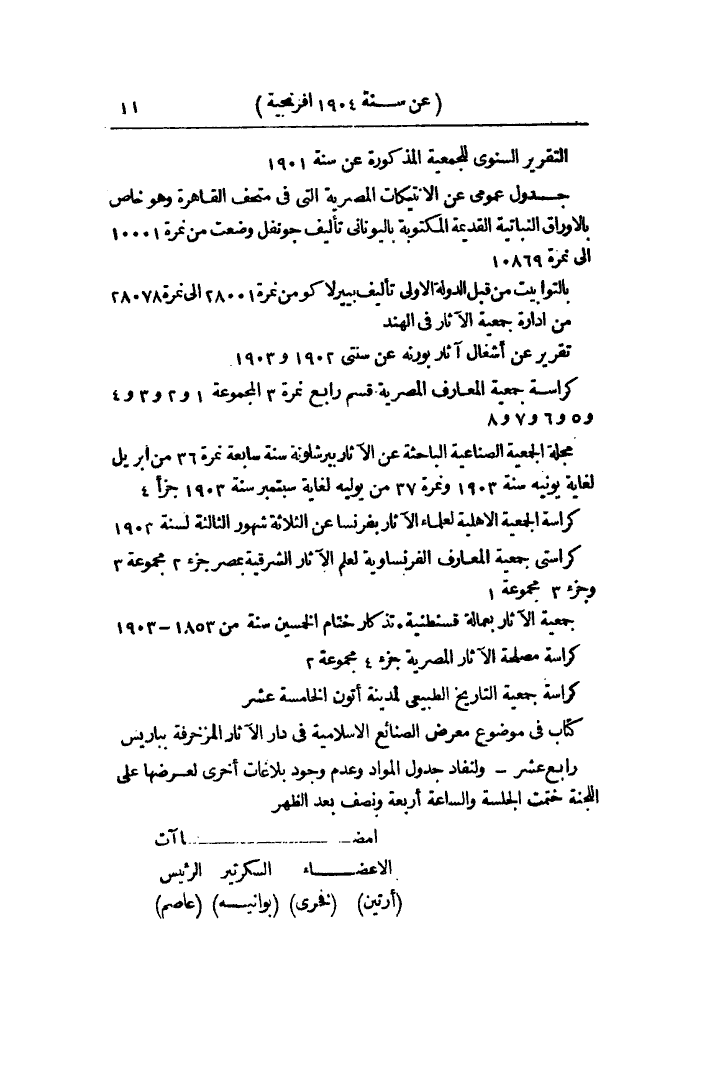 (عن سنة ١٩٠٤ افرنجية) ١١
التقرير السنوى للجمعية المذكورة عن سنة ١٩٠١
جدول عمومى عن الانتيكات المصرية التى فى متحف القاهرة وهو خاص
بالاوراق النباتية القديمة المكتوبة باليونانى تأليف جونفل وضعت من نمرة ١٠٠٠١
الى نمرة ١٠٨٦٩
بالتوابيت من قبل الدولة الاولى تأليف بييرلاكو من نمرة ٢٨٠٠١ الى نمرة ٢٨٠٧٨
من ادارة جمعية الآثار فى الهند
تقرير عن أشغال آثار بورنه عن سنتى ١٩٠٢ و ١٩٠٣
كراسة جمعية المعارف المصرية قسم رابع نمرة ٣ المجموعة ١ و ٢ و ٣ و ٤
و ٥ و ٦ و ٧ و ٨
مجلة الجمعية الصناعية الباحثة عن الآثار ببرشلونة سنة سابعة نمرة ٣٦ من ابريل
لغاية يونيه سنة ١٩٠٣ ونمرة ٣٧ من يوليه لغاية سبتمبر سنة ١٩٠٣ جزأ ٤
كراسة الجمعية الاهلية لعلماء الآثار بفرنسا عن الثلاثة شهور الثالثة لسنة ١٩٠٢
كراستى جمعية المعارف الفرنساوية لعلم الآثار الشرقية بمصر جزء ٢ مجموعة ٣
وجزء ٣ مجموعة ١
جمعية الآثار بعمالة قسنطنية. تذكار ختام الخمسين سنة من ١٨٥٣ - ١٩٠٣
كراسة مصلحة الآثار المصرية جزء ٤ مجموعة ٢
كراسة جمعية التاريخ الطبيعى لمدينة أتون الخامسة عشر
كتاب فى موضوع معرض الصنائع الاسلامية فى دار الآثار المزخرفة بباريس
رابع عشر - ولنفاد جدول المواد وعدم وجود بلاغات أخرى لعرضها على
اللجنة ختمت الجلسة والساعة أربعة ونصف بعد الظهر
امضاآت
الاعضاء السكرتير الرئيس
(أرتين) (فخرى) (بوانيسه) (عاصم)